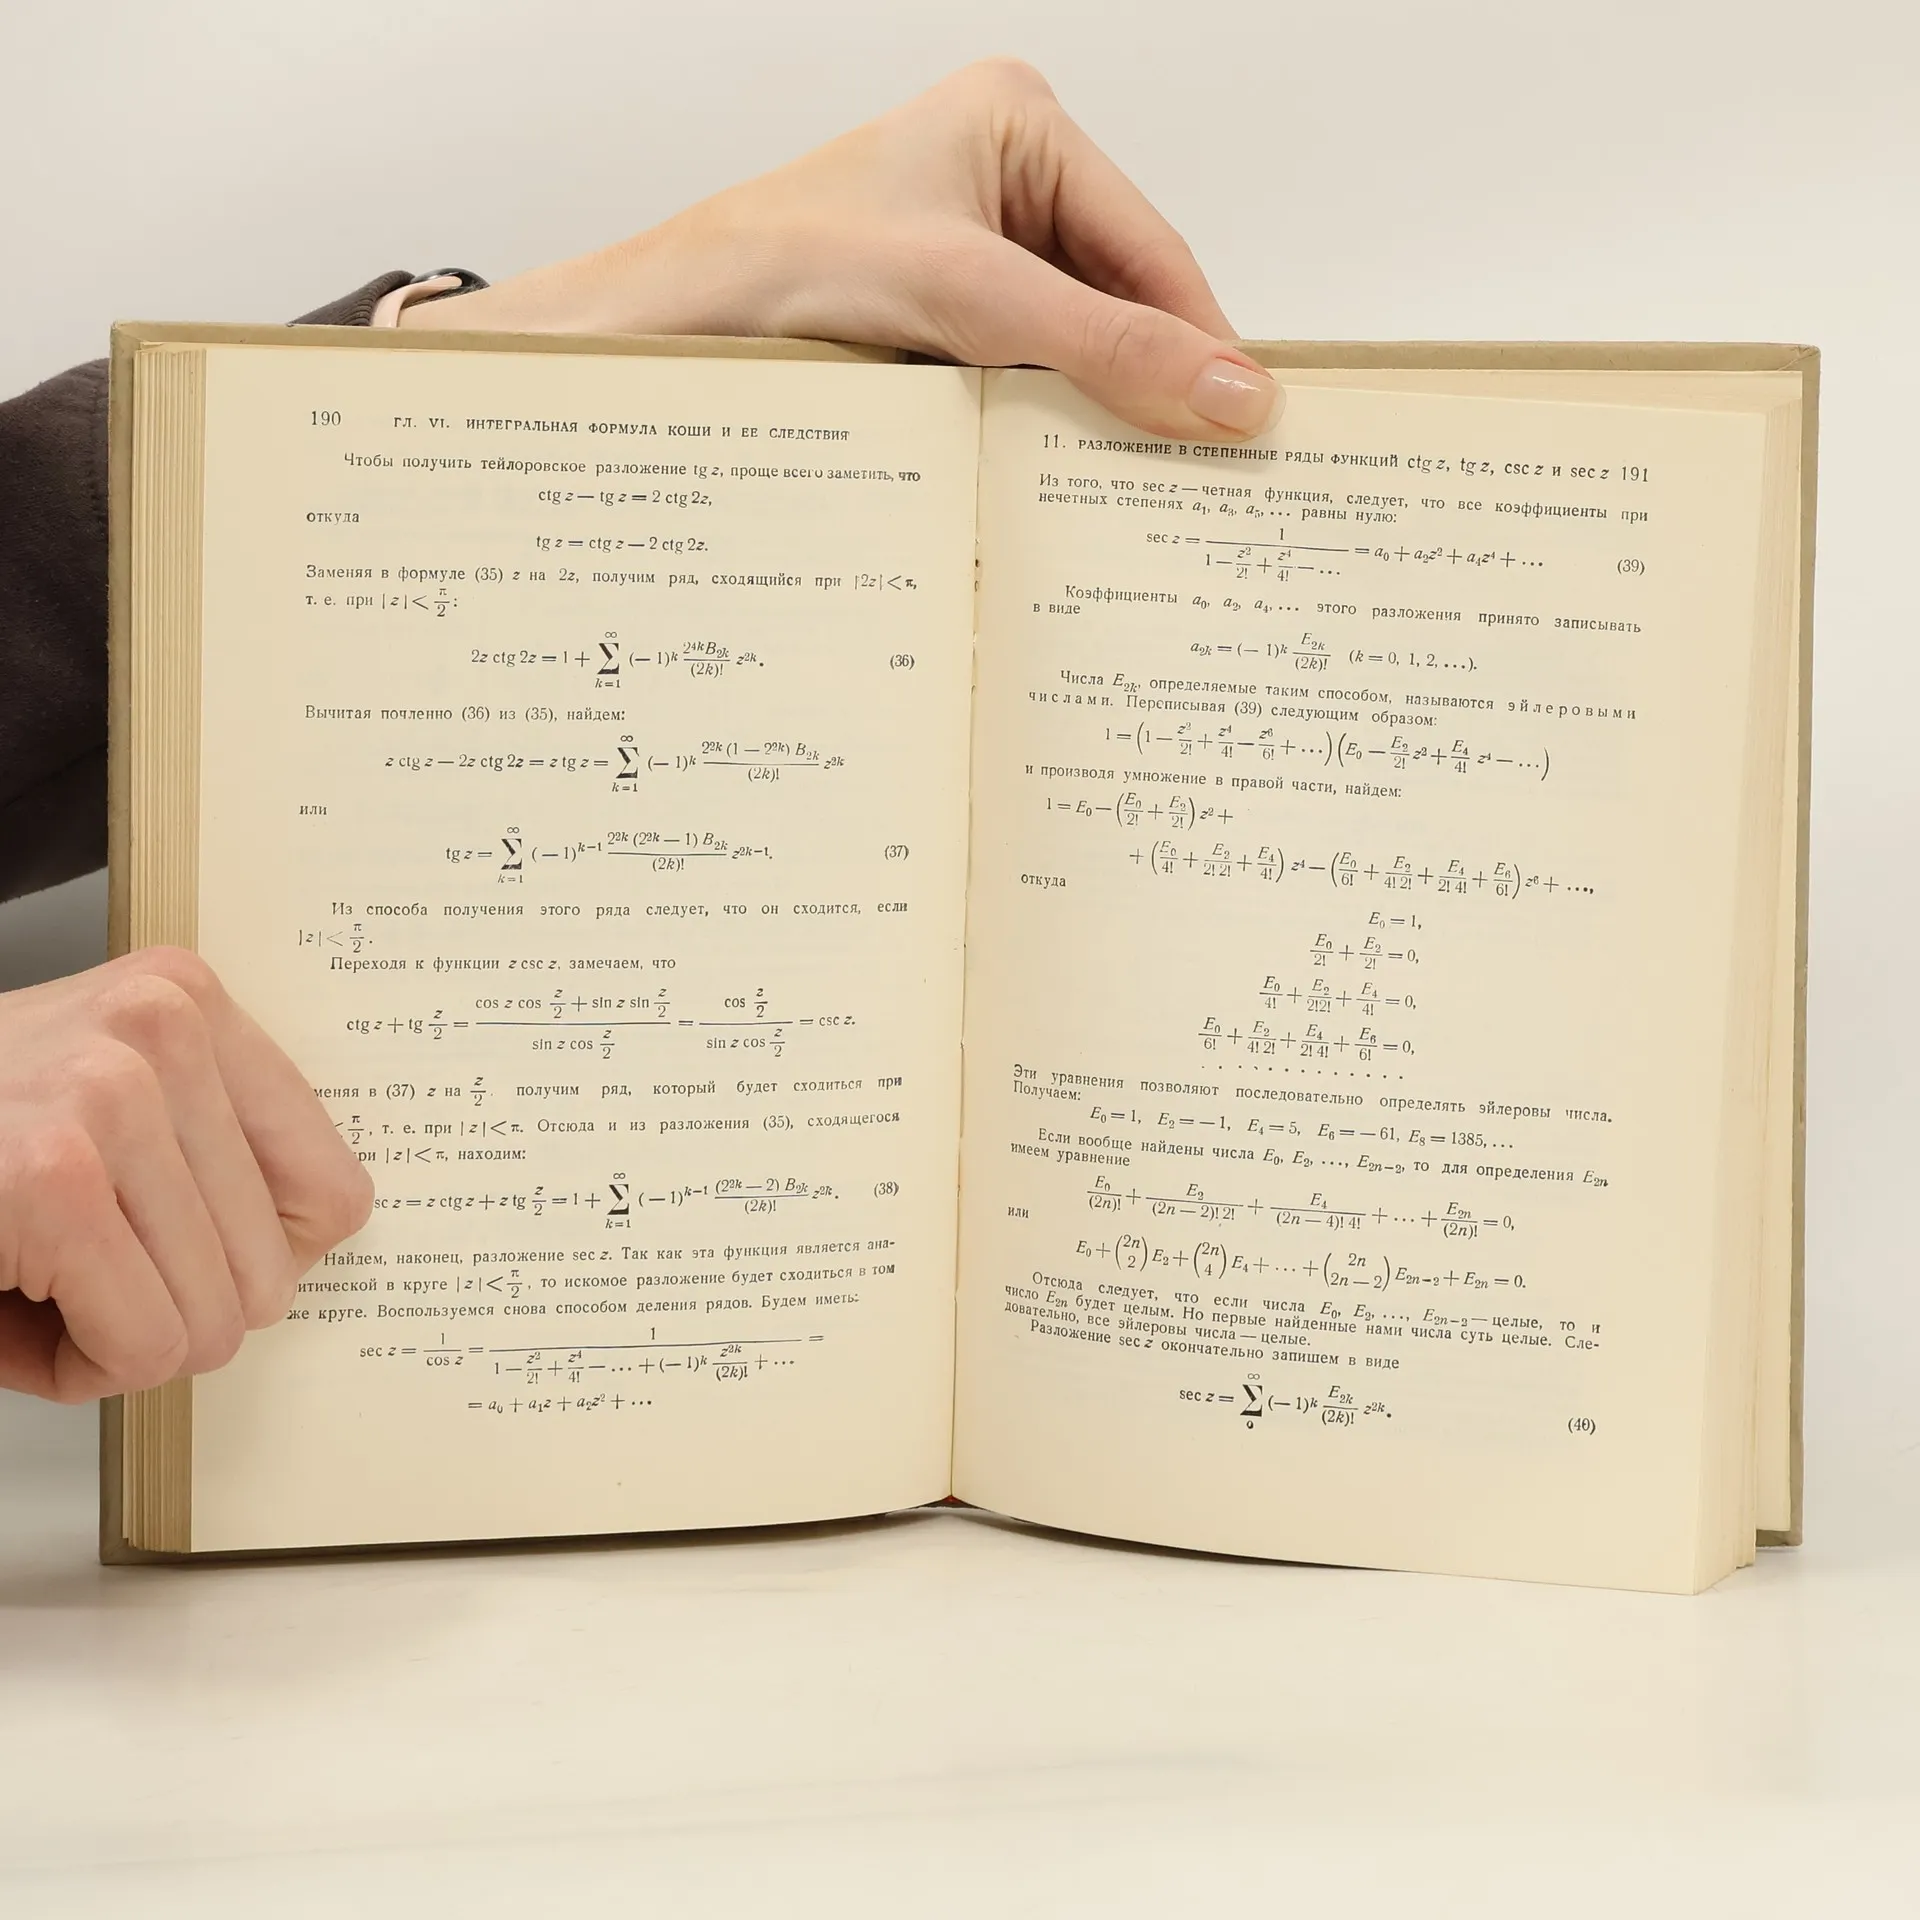 190 ГЛ. VI. ИНТЕГРАЛЬНАЯ ФОРМУЛА КОШИ И ЕЕ СЛЕДСТВИЯ
Чтобы получить тейлоровское разложение tg z, проще всего заметить, что
ctg z — tg z = 2 ctg 2z,
откуда
tg z = ctg z — 2 ctg 2z.
Заменяя в формуле (35) z на 2z, получим ряд, сходящийся при |2z| < π,
т. е. при |z| < π/2:
2z ctg 2z = 1 + ∑_{k=1}^{∞} (— 1)^k \frac{2^{4k}B_{2k}}{(2k)!} z^{2k}. (36)
Вычитая почленно (36) из (35), найдем:
z ctg z — 2z ctg 2z = z tg z = ∑_{k=1}^{∞} (— 1)^k \frac{2^{2k} (1 — 2^{2k}) B_{2k}}{(2k)!} z^{2k}
или
tg z = ∑_{k=1}^{∞} (— 1)^{k—1} \frac{2^{2k} (2^{2k} — 1) B_{2k}}{(2k)!} z^{2k—1}. (37)
Из способа получения этого ряда следует, что он сходится, если
|z| < π/2.
Переходя к функции z csc z, замечаем, что
ctg z + tg \frac{z}{2} = \frac{cos z cos \frac{z}{2} + sin z sin \frac{z}{2}}{sin z cos \frac{z}{2}} = \frac{cos \frac{z}{2}}{sin z cos \frac{z}{2}} = csc z.
меняя в (37) z на z/2, получим ряд, который будет сходиться при
< π/2, т. е. при |z| < π. Отсюда и из разложения (35), сходящегося
ри |z| < π, находим:
sc z = z ctg z + z tg \frac{z}{2} = 1 + ∑_{k=1}^{∞} (— 1)^{k—1} \frac{(2^{2k} — 2) B_{2k}}{(2k)!} z^{2k}. (38)
Найдем, наконец, разложение sec z. Так как эта функция является ана-
итической в круге |z| < π/2, то искомое разложение будет сходиться в том
же круге. Воспользуемся снова способом деления рядов. Будем иметь:
sec z = \frac{1}{cos z} = \frac{1}{1 — \frac{z^2}{2!} + \frac{z^4}{4!} — ... + (— 1)^k \frac{z^{2k}}{(2k)!} + ...} =
= a_0 + a_1z + a_2z^2 + ...
11. РАЗЛОЖЕНИЕ В СТЕПЕННЫЕ РЯДЫ ФУНКЦИЙ ctg z, tg z, csc z и sec z 191
Из того, что sec z — четная функция, следует, что все коэффициенты при
нечетных степенях a_1, a_3, a_5, ... равны нулю:
sec z = \frac{1}{1 — \frac{z^2}{2!} + \frac{z^4}{4!} — ...} = a_0 + a_2z^2 + a_4z^4 + ... (39)
Коэффициенты a_0, a_2, a_4, ... этого разложения принято записывать
в виде
a_{2k} = (— 1)^k \frac{E_{2k}}{(2k)!} (k = 0, 1, 2, ...).
Числа E_{2k}, определяемые таким способом, называются эйлеровыми
числами. Переписывая (39) следующим образом:
1 = (1 — \frac{z^2}{2!} + \frac{z^4}{4!} — \frac{z^6}{6!} + ...) (E_0 — \frac{E_2}{2!} z^2 + \frac{E_4}{4!} z^4 — ...)
и производя умножение в правой части, найдем:
1 = E_0 — (\frac{E_0}{2!} + \frac{E_2}{2!}) z^2 +
+ (\frac{E_0}{4!} + \frac{E_2}{2! 2!} + \frac{E_4}{4!}) z^4 — (\frac{E_0}{6!} + \frac{E_2}{4! 2!} + \frac{E_4}{2! 4!} + \frac{E_6}{6!}) z^6 + ...,
откуда
E_0 = 1,
\frac{E_0}{2!} + \frac{E_2}{2!} = 0,
\frac{E_0}{4!} + \frac{E_2}{2!2!} + \frac{E_4}{4!} = 0,
\frac{E_0}{6!} + \frac{E_2}{4! 2!} + \frac{E_4}{2! 4!} + \frac{E_6}{6!} = 0,
. . . . . . . . . . . .
Эти уравнения позволяют последовательно определять эйлеровы числа.
Получаем:
E_0 = 1, E_2 = — 1, E_4 = 5, E_6 = — 61, E_8 = 1385, ...
Если вообще найдены числа E_0, E_2, ..., E_{2n—2}, то для определения E_{2n}
имеем уравнение
\frac{E_0}{(2n)!} + \frac{E_2}{(2n — 2)! 2!} + \frac{E_4}{(2n — 4)! 4!} + ... + \frac{E_{2n}}{(2n)!} = 0,
или
E_0 + \binom{2n}{2} E_2 + \binom{2n}{4} E_4 + ... + \binom{2n}{2n — 2} E_{2n—2} + E_{2n} = 0.
Отсюда следует, что если числа E_0, E_2, ..., E_{2n—2} — целые, то и
число E_{2n} будет целым. Но первые найденные нами числа суть целые. Сле-
довательно, все эйлеровы числа — целые.
Разложение sec z окончательно запишем в виде
sec z = ∑_{0}^{∞} (— 1)^k \frac{E_{2k}}{(2k)!} z^{2k}. (40)